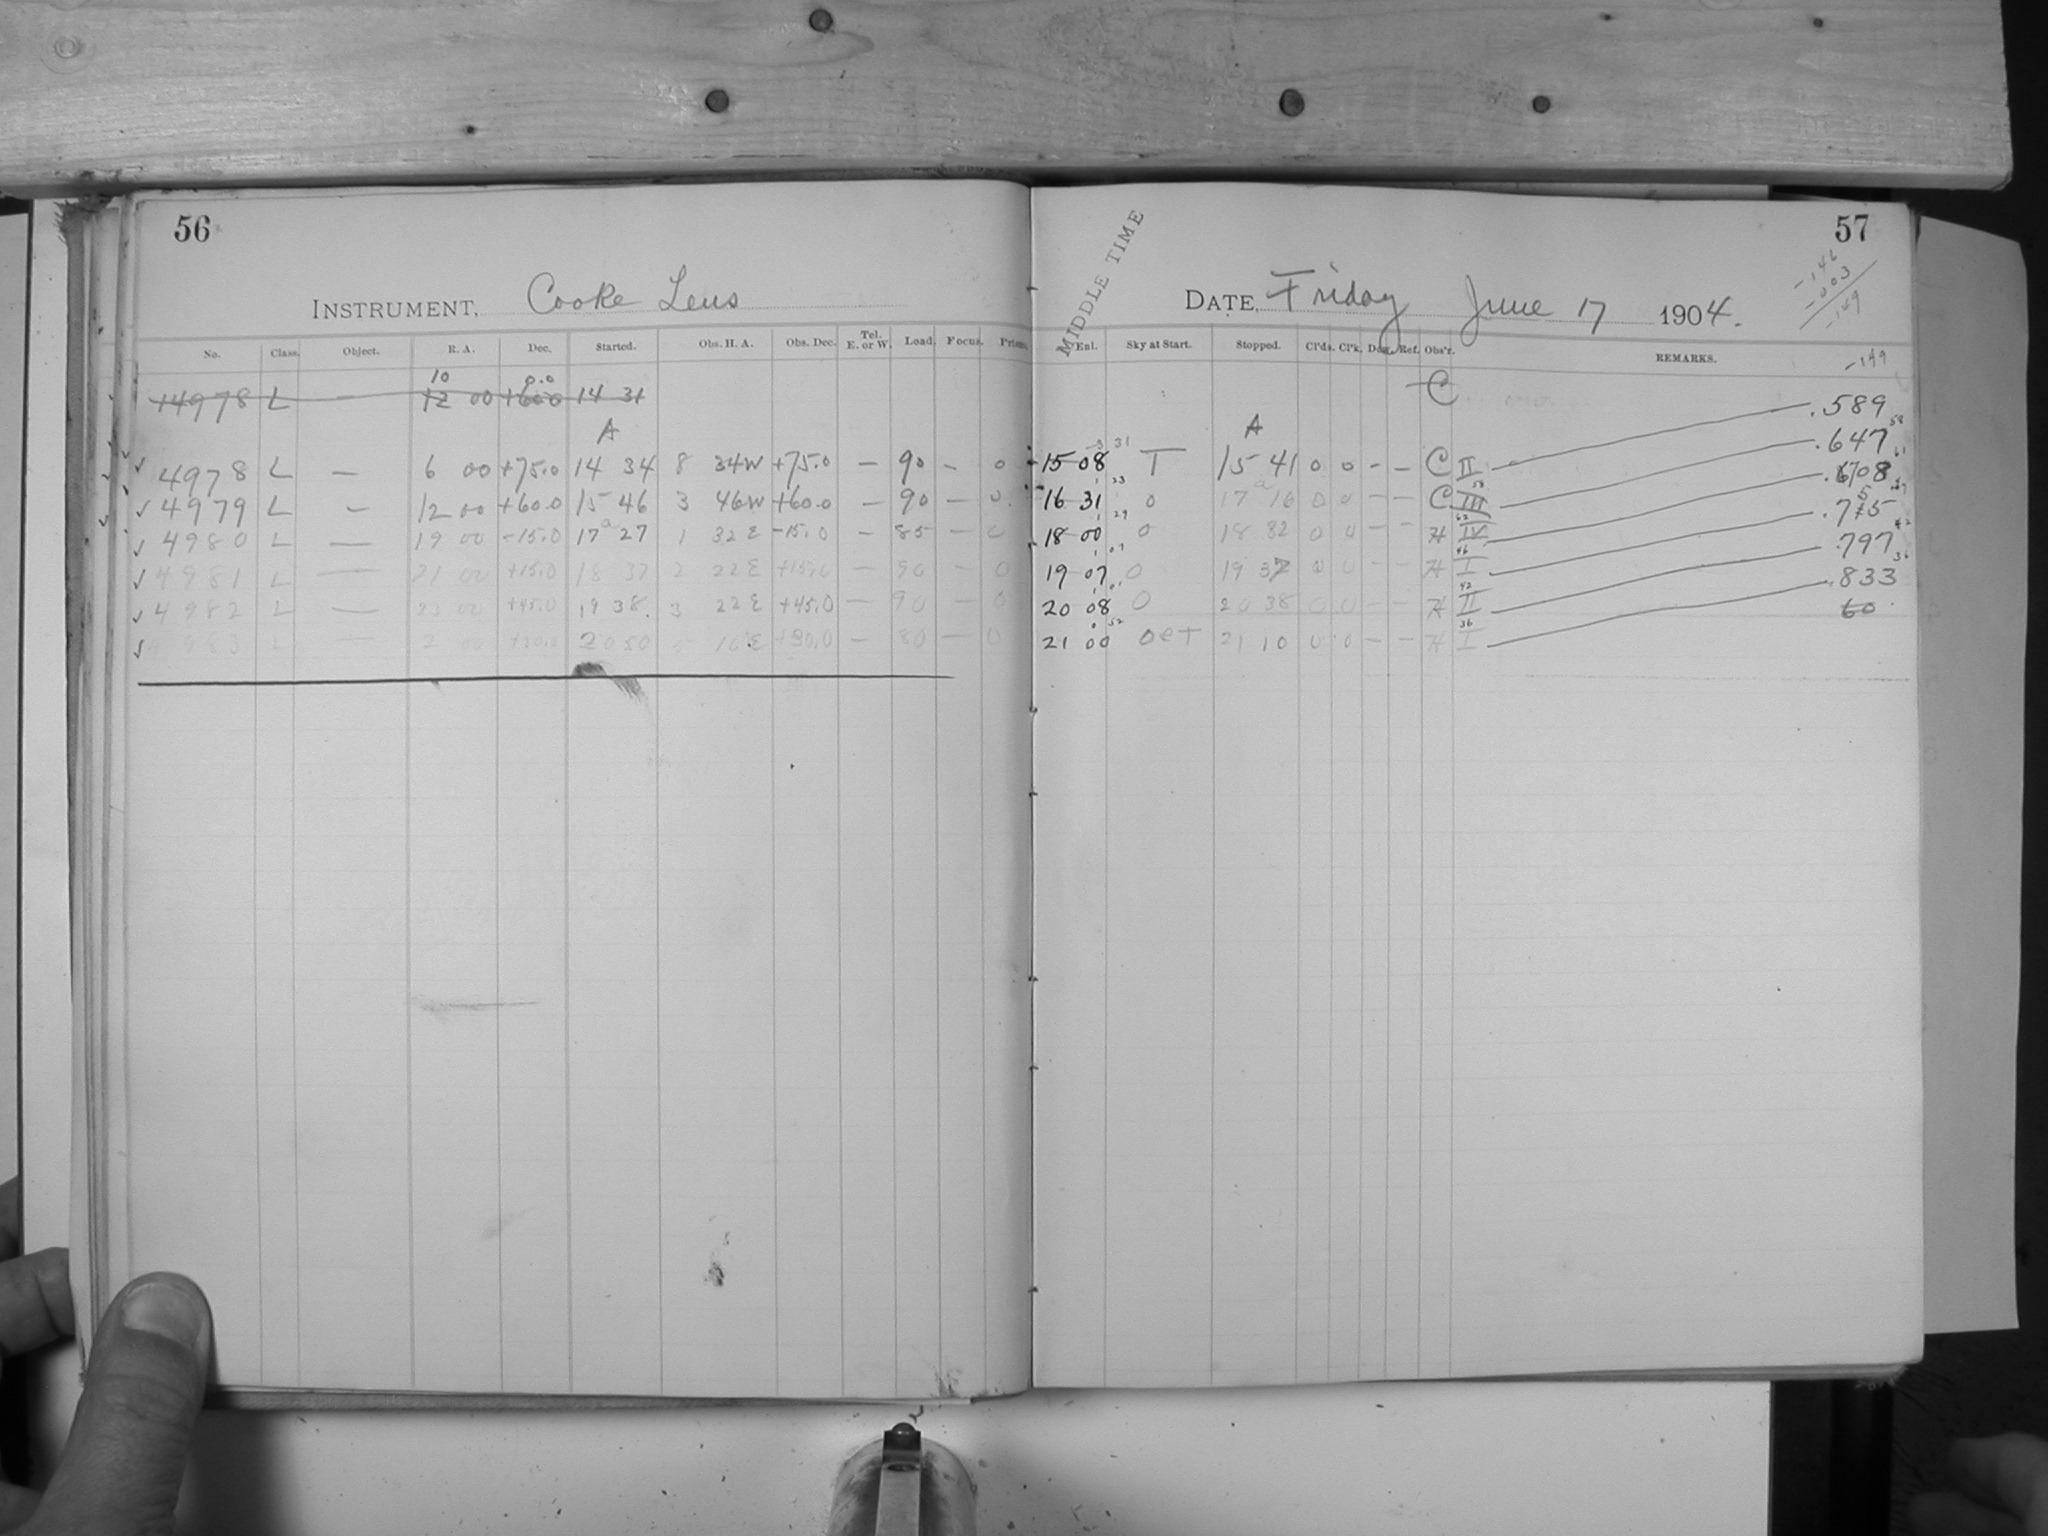 56
INSTRUMENT, Cooke Lens
No. Class. Object. R. A. Dec. Started. Obs. H. A. Obs. Dec. Tel. E. or W. Load. Focus. Prism.
10 0.0
14978 L — 12 00 +60.0 14 31
A
✓ 4978 L — 6 00 +75.0 14 34 8 34W +75.0 — 90 – 0
✓ 4979 L — 12 00 +60.0 15 46 3 46W +60.0 — 90 — 0
✓ 4980 L — 19 00 -15.0 17 27 1 32E -15.0 — 85 — 0
✓ 4981 L — 21 00 +15.0 18 37 2 22E +15.0 — 90 — 0
✓ 4982 L — 23 00 +45.0 19 38 3 22E +45.0 — 90 — 0
✓ 4983 L — 2 00 +30.0 20 50 5 10E +30.0 — 80 — 0
57
MIDDLE TIME
-146
-003
-149
DATE, Friday June 17 1904.
Enl. Sky at Start. Stopped. Cl'ds. Cl'k. Dew. Ref. Obs'r. REMARKS.
-149
C
.589
A
58
.647
15 08 T 15 41 0 0 – – C II
61
.708
16 31 0 17 16 0 0 – – C III
.755
18 00 0 18 32 0 0 – – H IV
42
.797
19 07 0 19 37 0 0 – – H I
36
.833
20 08 0 20 38 0 0 – – H II
60
21 00 0 e T 21 10 0 0 – – H I